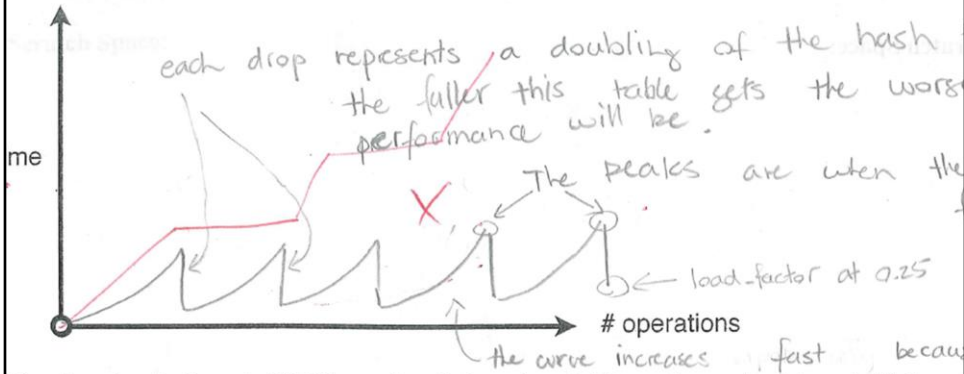 each drop represents a doubling of the hash
the fuller this table gets the worse
performance will be.
me
The peaks are when the
X
load-factor at 0.25
# operations
the curve increases fast becau